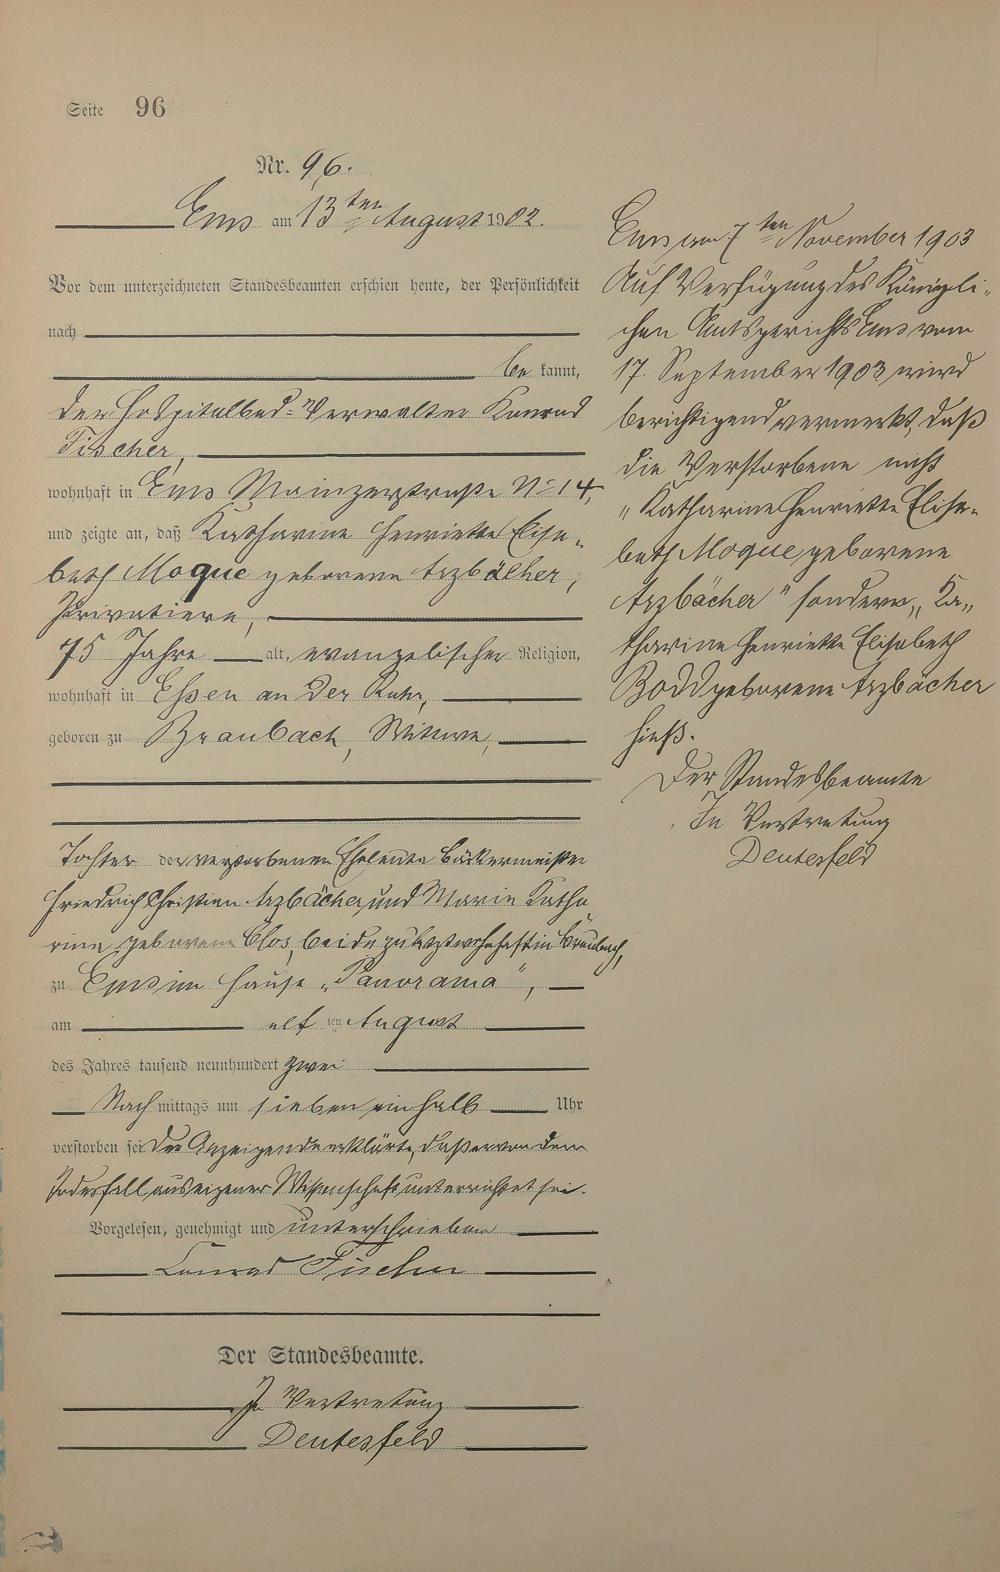 Seite 96
Nr. 96.
Ems am 13ten August 1902.
Vor dem unterzeichneten Standesbeamten erschien heute, der Persönlichkeit
nach
be kannt,
der Hospitalbad-Verwalter Konrad
Fischer,
wohnhaft in Ems Mainzerstraße No 14,
und zeigte an, daß Katharine Henriette Elisa-
beth Moque geborene Arzbächer,
Privatiere,
75 Jahre alt, evangelischer Religion,
wohnhaft in Essen an der Ruhr,
geboren zu Braubach, Wittwe,
Tochter der verstorbenen Eheleute Bäckermeister
Friedrich Christian Arzbächer und Marie Katha
rine geborene Clos, beide zuletzt wohnhaft in Braubach,
zu Ems im Hause „Panorama“,
am elf ten August
des Jahres tausend neunhundert zwei
Nach mittags um sieben einhalb Uhr
verstorben sei. Der Anzeigende erklärte, daß er von dem
Todesfall aus eigener Wissenschaft unterrichtet sei.
Vorgelesen, genehmigt und unterschrieben
Conrad Fischer
Der Standesbeamte.
In Vertretung
Deutesfeld
Ems am 7ten November 1903
Auf Verfügung des Königli-
chen Amtsgerichts Ems vom
17. September 1903 wird
berichtigend vermerkt, daß
die Verstorbene nicht
„Katharine Henriette Elisa-
beth Moque geborene
Arzbächer“ sondern „Ka„
tharine Henriette Elisabeth
Bodd geborene Arzbächer
hieß.
Der Standesbeamte
In Vertretung
Deutesfeld